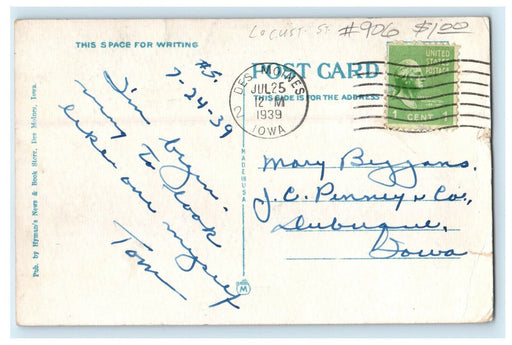 Locust St. #906 $1.00
THIS SPACE FOR WRITING
#5.
7-24-39
I'm begin-
ing to look
like one myself
Tom
DES MOINES
2
JUL 25
12 M
1939
IOWA
UNITED
STATES
POSTAGE
1 CENT 1
POST CARD
THIS SIDE IS FOR THE ADDRESS
Mary Beggans.
J.C. Penney & Co.,
Dubuque,
Iowa
MADE U.S.A.
M
Pub. by Hyman's News & Book Store, Des Moines, Iowa.